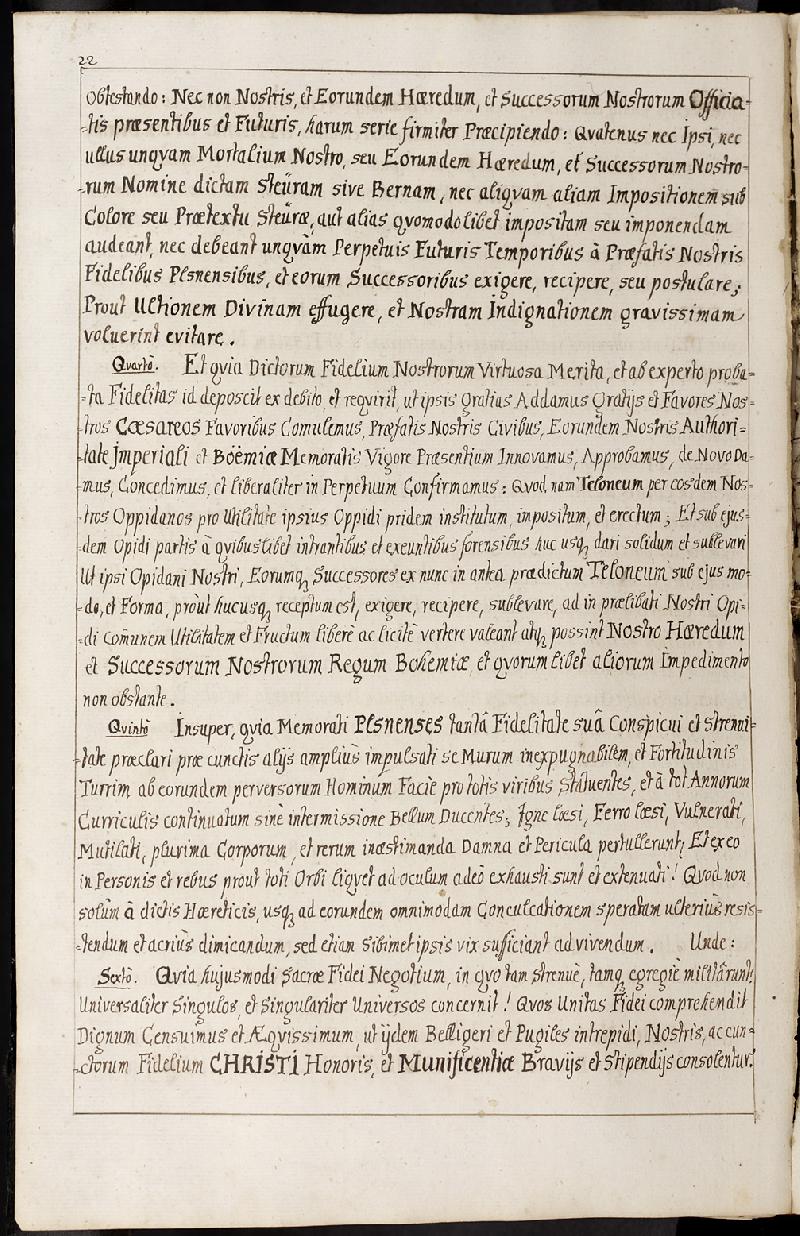 22
obtestando: Nec non Nostris, et Eorundem Hæredum, et Successorum Nostrorum Officia-
-tis præsentibus et Futuris, harum serie firmiter Præcipiendo: Qvatenus nec Ipsi, nec
ullus unqvam Mortalium Nostro, seu Eorundem Hæredum, et Successorum Nostro-
-rum Nomine dictam Steüram sive Bernam, nec aliqvam aliam Impositionem sub
Colore seu Prætextu Steüræ, aut alias qvomodolibet impositam seu imponendam
audeant, nec debeant unqvàm Perpetuis Futuris Temporibus â Præfatis Nostris
Fidelibus Plsnensibus, et eorum Successoribus exigere, recipere, seu postulare;
Prout Ultionem Divinam effugere, et Nostram Indignationem gravissimam
voluerint evitare.
Qvartò. Et qvia Dictorum Fidelium Nostrorum Virtuosa Merita, et ab experto proba-
-ta Fidelitas id deposcit ex debito, et reqvirit, ut ipsis Gratius Addamus Gratijs et Favores Nos-
-tros Cæsareos Favoribus Comulemus, Præfatis Nostris Civibus, Eorundem Nostris Authori-
-tate Imperiali et Böëmiæ Memoratis Vigore Præsentium Innovamus, Approbamus, de Novo Da-
-mus, Concedimus, et liberaliter in Perpetuum Confirmamus: Qvod nam Teloneum per eosdem Nos-
-tros Oppidanos pro Utilitate ipsius Oppidi pridem institutum, impositum, et erectum; Et sub ejus-
-dem Opidi partis â qvibuslibet intrantibus et exeuntibus forensibus huc usq dari solidum et sublevari
Ut ipsi Opidani Nostri, Eorumq Successores ex nunc in antea prædictum Teloneum sub ejus mo-
-do, et Forma, proùt hucusq receptum est, exigere, recipere, sublevare, ad in prælibati Nostri Opi-
-di Com̄unem Utilitatem et Fructum liberè ac licitè vertere valeant atq possint Nostro Hæredum
et Successorum Nostrorum Regum Bohemiæ, et qvorumlibet aliorum Impedimento
non obstante.
Qvintò Insuper, qvia Memorati Plsnenses tantâ Fidelitate suâ Conspicui et strenui-
-tate præclari præ cunctis alijs ampliùs impulsati se Murum inexpugnabilem, et Fortitudinis
Turrim ab eorundem perversorum Hominum Faciè pro totis viribus Statuentes, et â tot Annorum
Curriculis continuatum sinè intermissione Bellum Ducentes; Igne læsi, Ferro læsi, Vulnerati,
Mutilati, plurima Corporum, et rerum inæstimanda Damna et Pericula pertullerunt; Et ex eo
in Personis et rebus prout toti Orbi liqvet ad oculum adeò exhausti sunt et extenuati! Qvod non
solùm â dictis Hæreticis, usq ad eorundem omnimodam Conculcationem speratam ulteriùs resis-
-tendum et acriùs dimicandum, sed etiam sibimet ipsis vix sufficiant ad vivendum. Unde:
Sextò. Qvia hujusmodi Sacræ Fidei Negotium, in qvo tam strenuè, tamq egregiè militârunt,
Universaliter Singulos, et Singulariter Universos concernit! Qvos Unitas Fidei comprehendit
Dignum Censuimus et Æqvissimum, ut ijdem Belligeri et Pugiles intrepidi, Nostris, ac cun-
-ctorum Fidelium CHRISTI Honoris, et Munificentiæ Bravijs et Stipendijs consolentur.